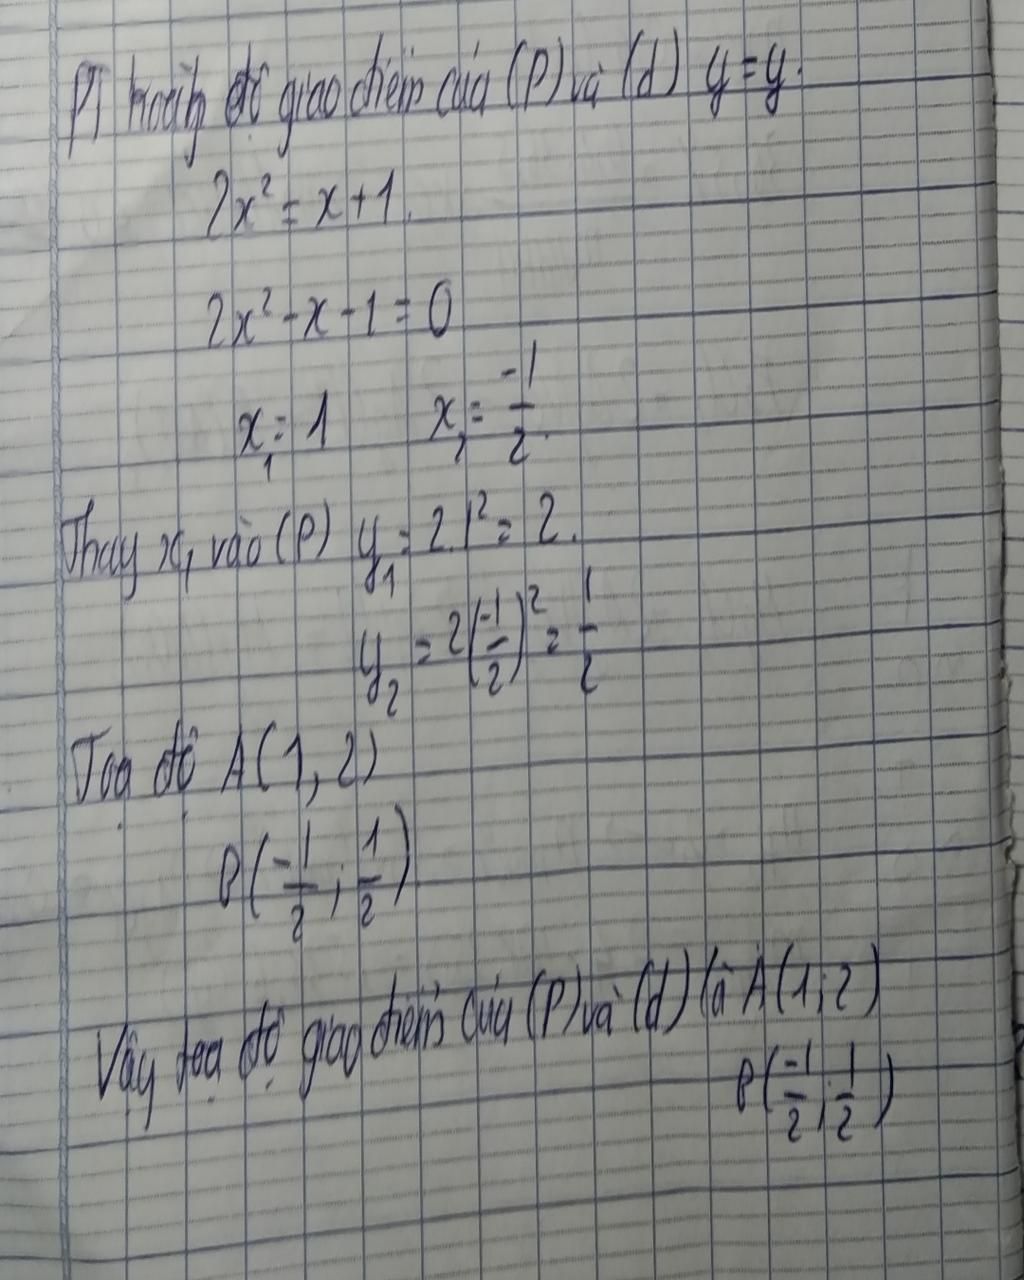 PT hoành độ giao điểm của (P) và (d) y = y.
2x² = x + 1.
2x² - x - 1 = 0
x₁ = 1 x₂ = -1/2.
Thay x₁ vào (P) y₁ = 2.1² = 2.
y₂ = 2(-1/2)² = 1/2
Toạ độ A(1, 2)
B(-1/2; 1/2)
Vậy tọa độ giao điểm của (P) và (d) là A(1; 2)
B(-1/2; 1/2)